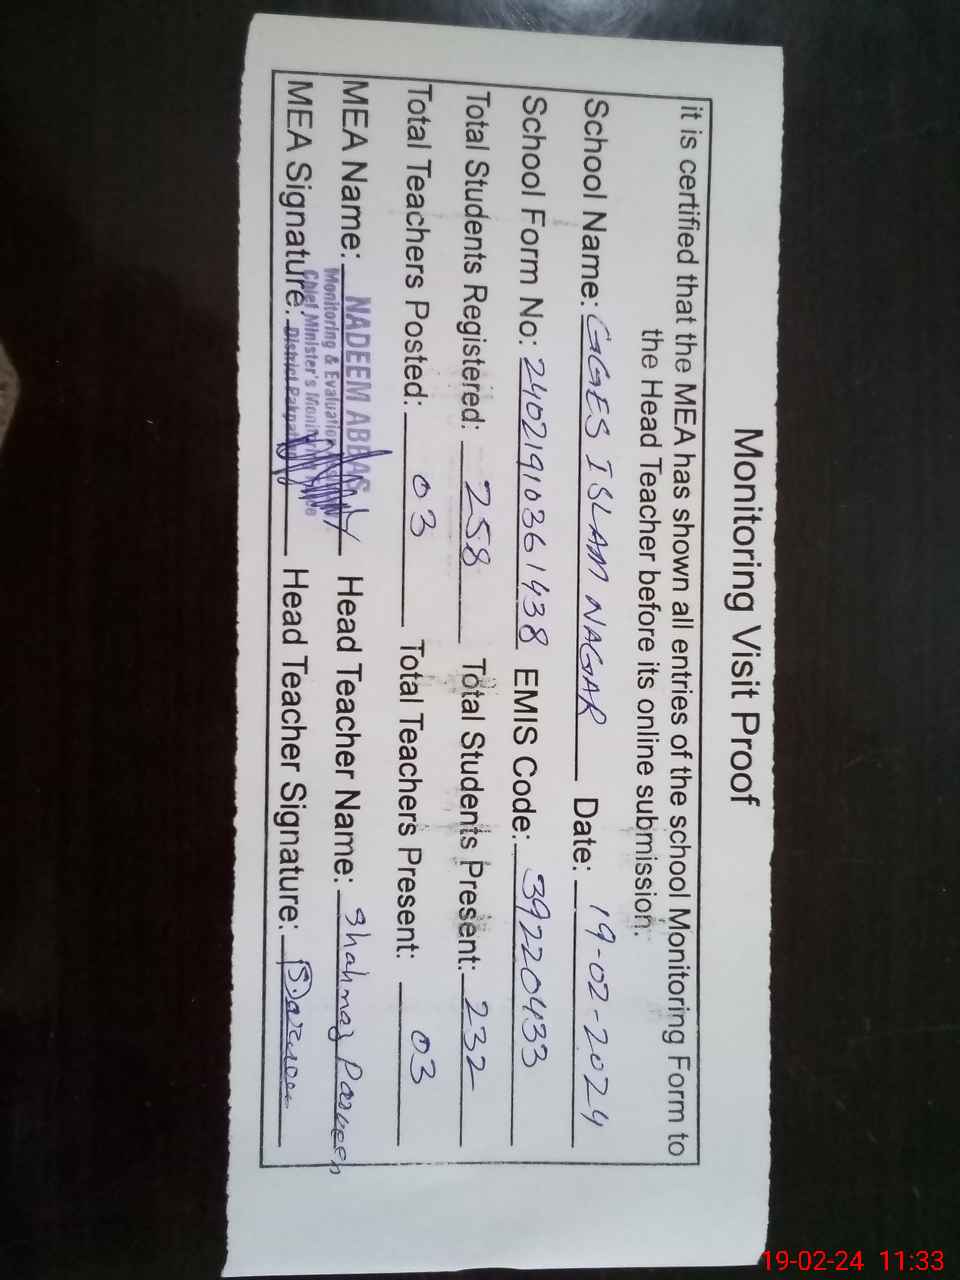 Monitoring Visit Proof
it is certified that the MEA has shown all entries of the school Monitoring Form to
the Head Teacher before its online submission.
School Name: GGES ISLAM NAGAR Date: 19-02-2024
School Form No: 24021910361438 EMIS Code: 39220433
Total Students Registered: 258 Total Students Present: 232
Total Teachers Posted: 03 Total Teachers Present: 03
MEA Name: NADEEM ABBAS Head Teacher Name: Shahnaz Parveen
Monitoring & Evaluation
MEA Signature: Chief Minister's Head Teacher Signature:
District
19-02-24 11:33